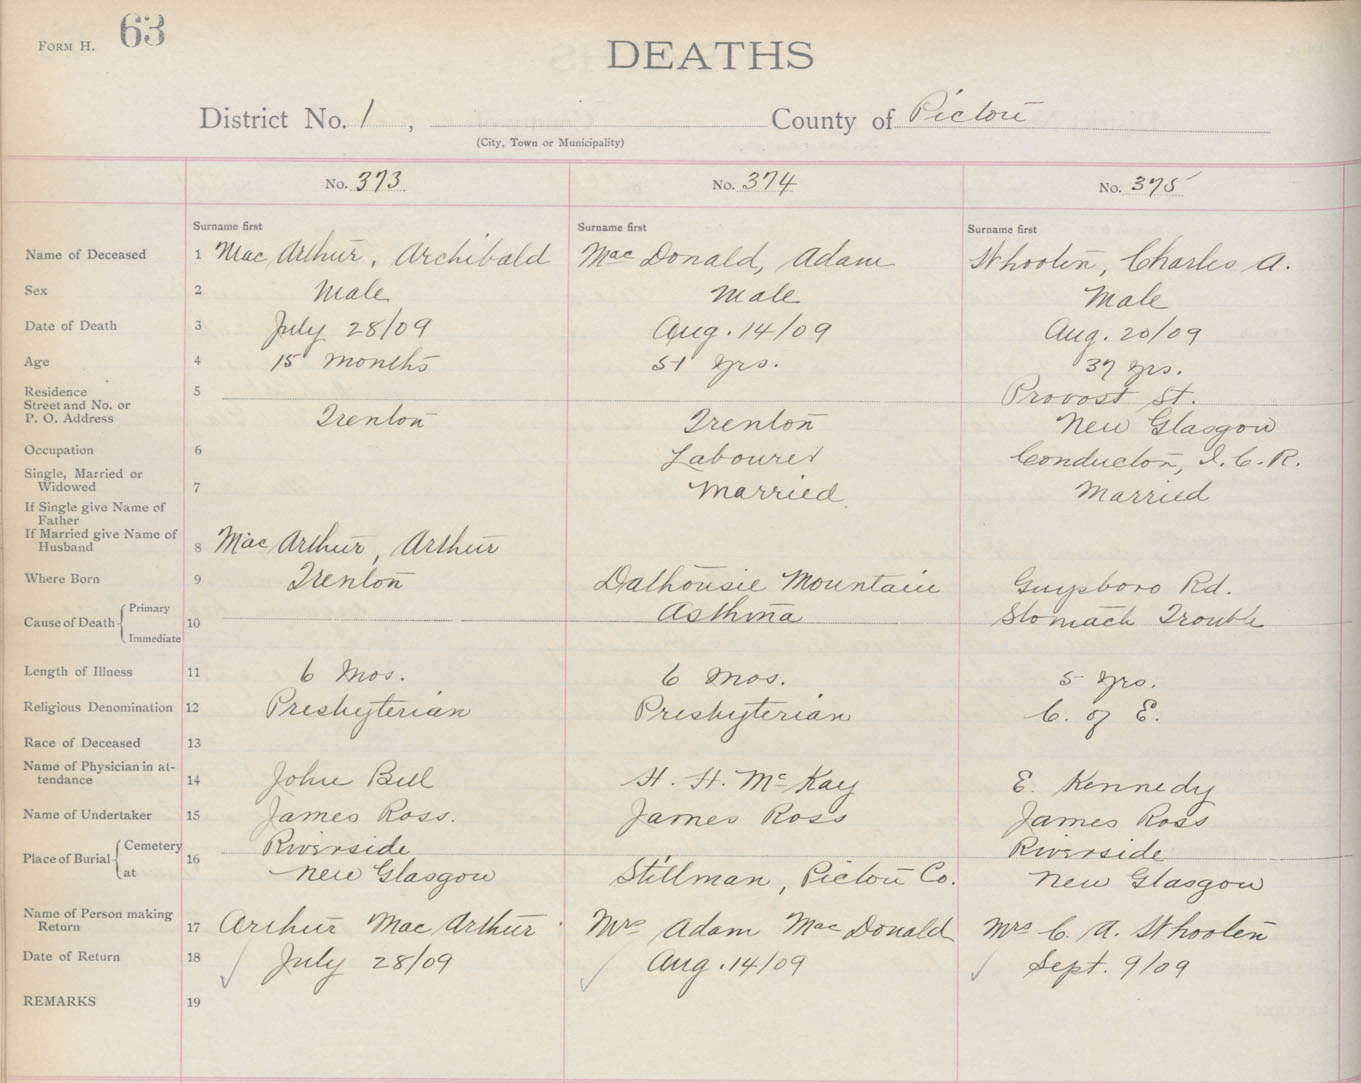 FORM H. 63
DEATHS
District No. 1, County of Pictou
(City, Town or Municipality)
No. 373 No. 374 No. 375
Surname first Surname first Surname first
Name of Deceased 1 MacArthur, Archibald MacDonald, Adam Whooten, Charles A.
Sex 2 Male Male Male
Date of Death 3 July 28/09 Aug. 14/09 Aug. 20/09
Age 4 15 months 51 yrs. 37 yrs.
Residence 5 Provost St.
Street and No. or
P. O. Address Trenton Trenton New Glasgow
Occupation 6 Labourer Conductor, I.C.R.
Single, Married or
Widowed 7 Married Married
If Single give Name of
Father
If Married give Name of
Husband 8 MacArthur, Arthur
Where Born 9 Trenton Dalhousie Mountain Guysboro Rd.
Cause of Death Primary 10 Asthma Stomach Trouble
Immediate
Length of Illness 11 6 Mos. 6 Mos. 5 yrs.
Religious Denomination 12 Presbyterian Presbyterian C. of E.
Race of Deceased 13
Name of Physician in at-
tendance 14 John Bell H. H. McKay E. Kennedy
Name of Undertaker 15 James Ross. James Ross James Ross
Place of Burial Cemetery 16 Riverside Riverside
at New Glasgow Stillman, Pictou Co. New Glasgow
Name of Person making
Return 17 Arthur MacArthur Mrs Adam MacDonald Mrs C. A. Whooten
Date of Return 18 July 28/09 Aug. 14/09 Sept. 9/09
REMARKS 19